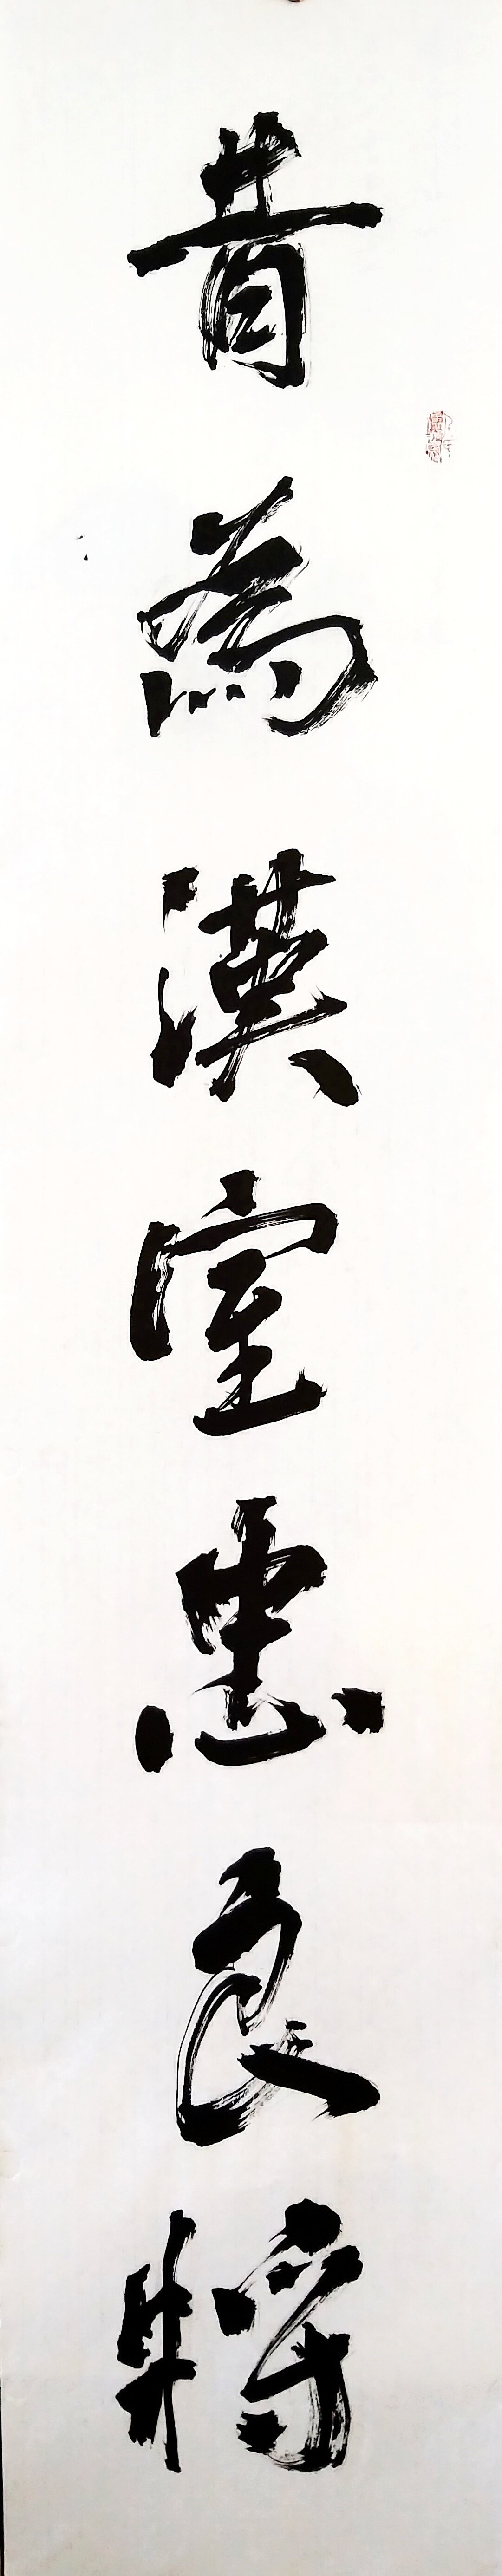 昔為漢室忠良將